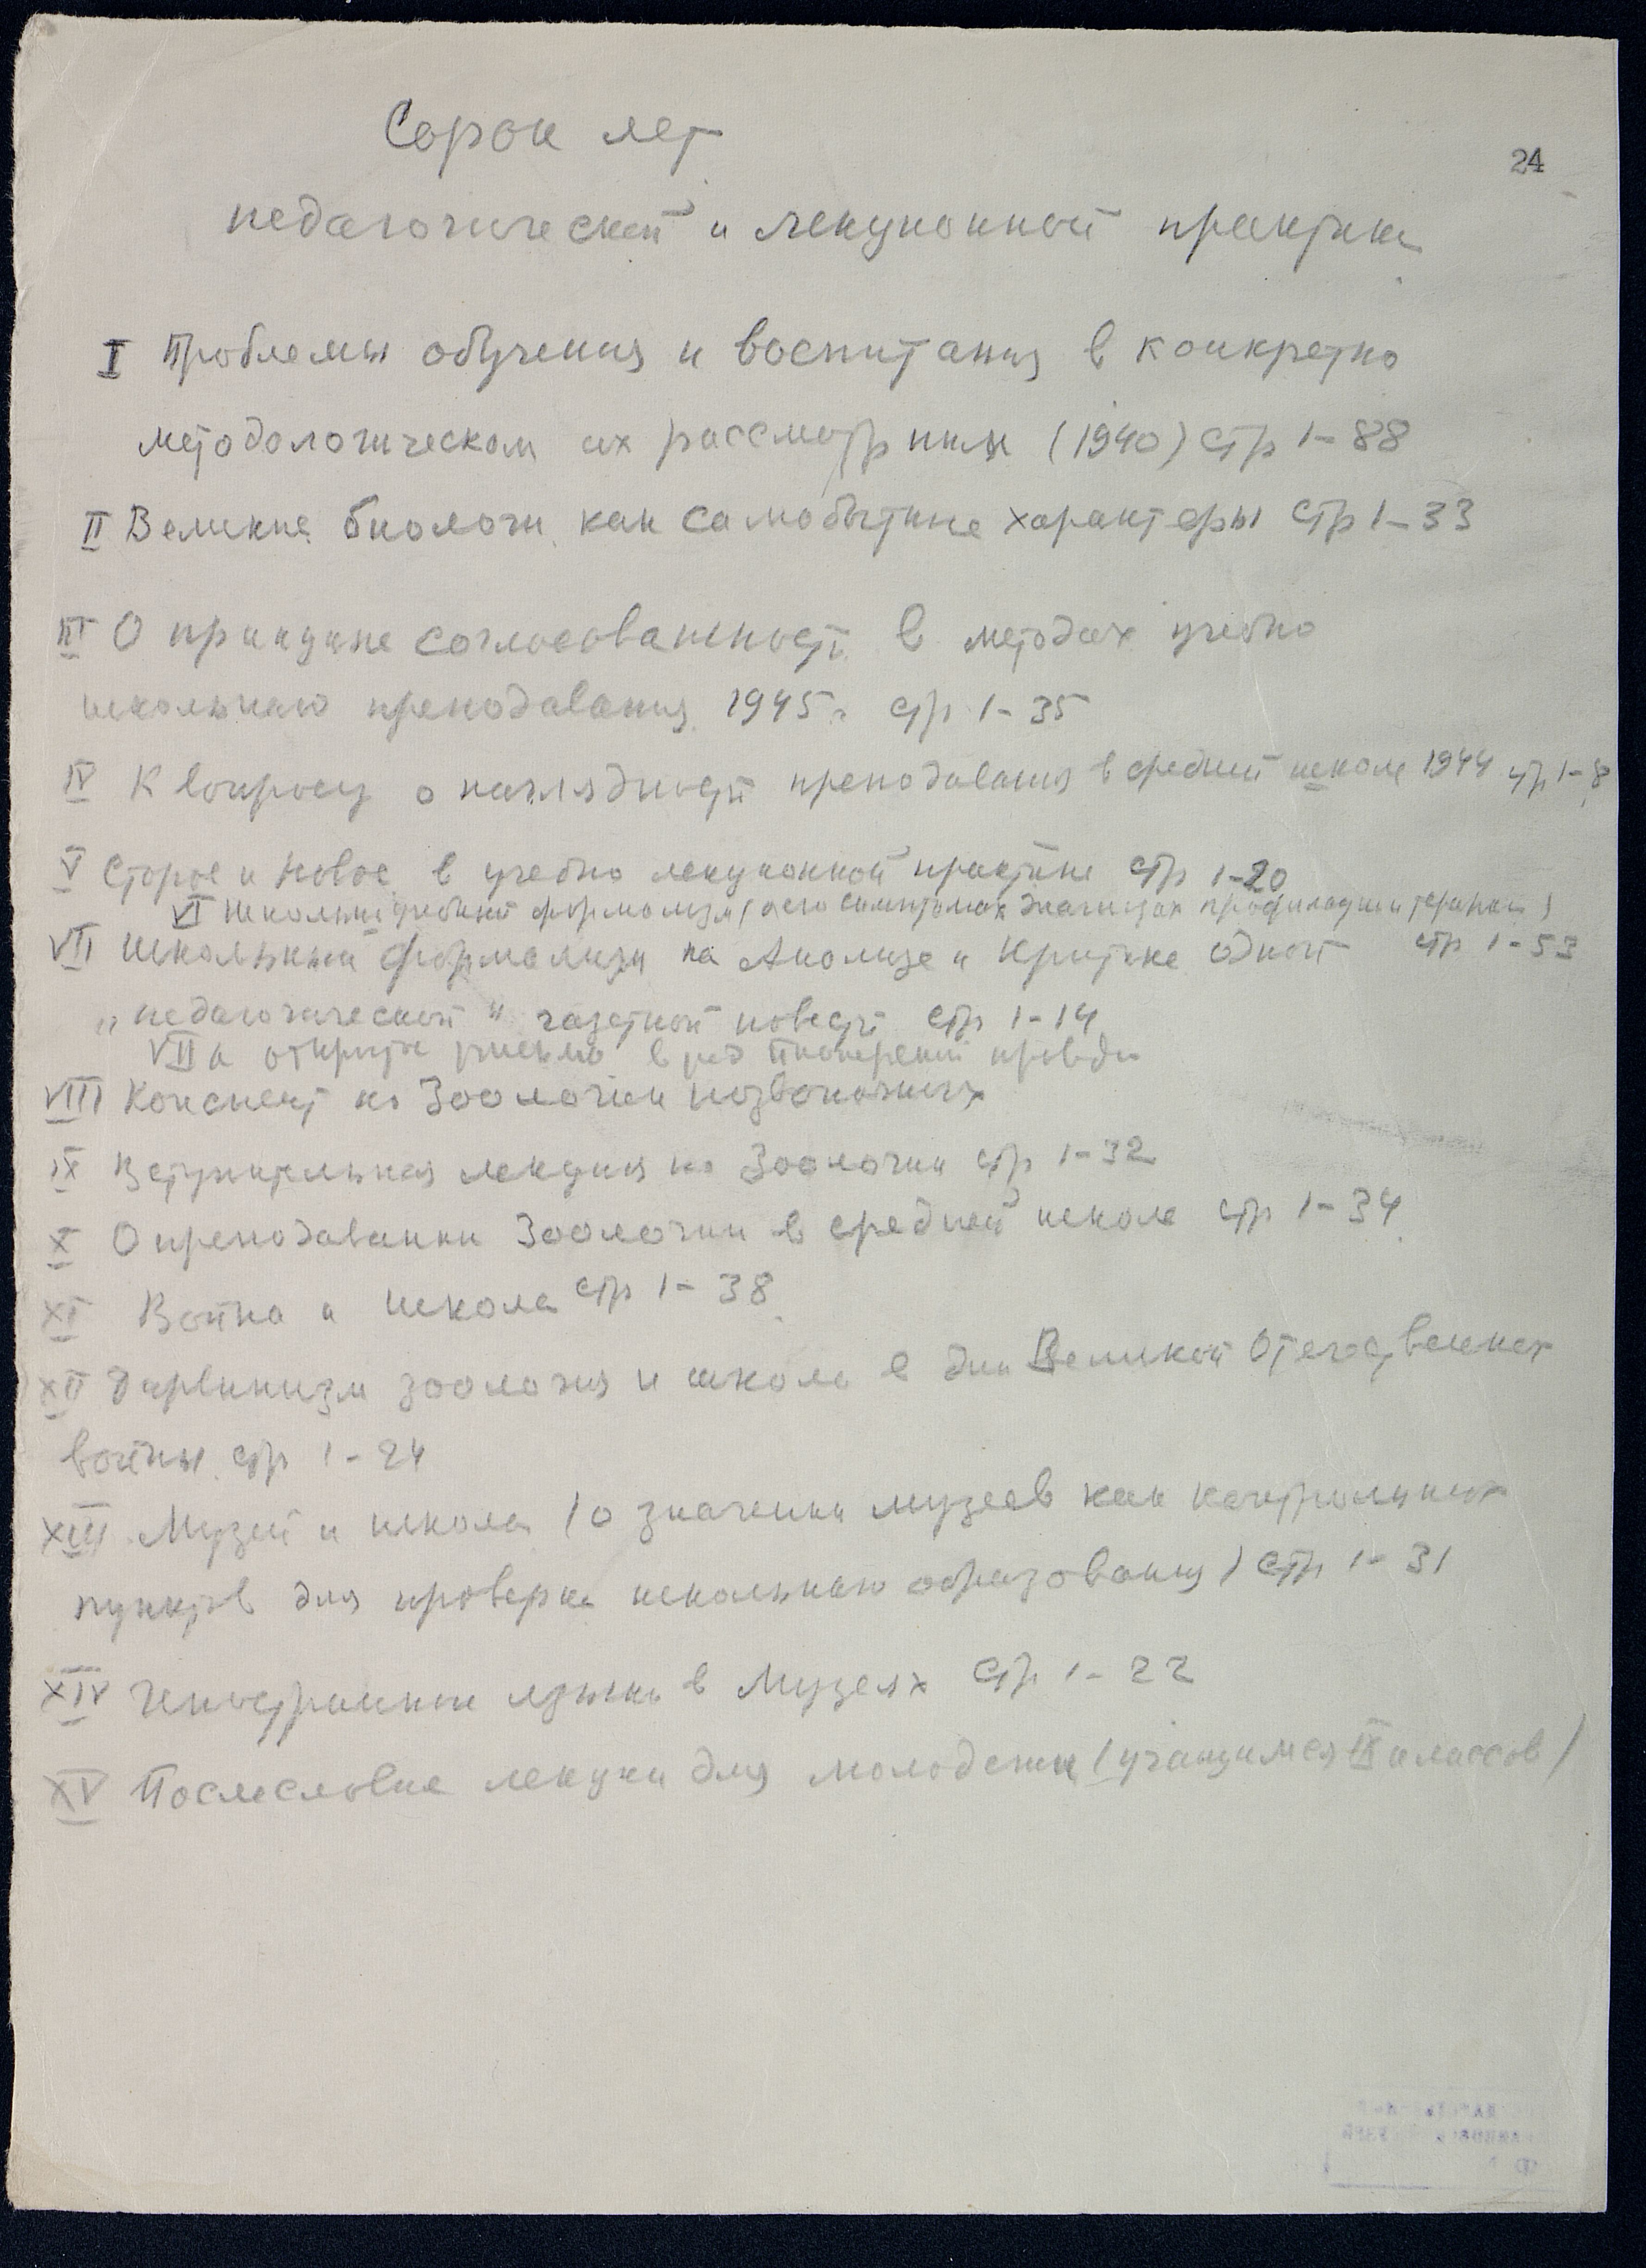 Сорок лет
24
педагогической и лекционной практики
I Проблемы обучения и воспитания в конкретно
методологическом их рассмотрении (1940) стр 1–88
II Великие биологи как самобытные характеры стр 1–33
III О принципе согласованности в методах учебно
школьного преподавания 1945 г. стр 1–35
IV К вопросу о наглядности преподавания в средней школе 1944 стр 1–8
V Старое и новое в учебно лекционной практике стр 1–20
VI Школьный учебный формализм (о его симптомах диагнозах профилакции и терапии)
VII Школьный формализм на Анализе и Критике одной стр 1–53
„педагогической" газетной повести стр 1–14
VII а открытое письмо в ред Пионерской правды
VIII Конспект по Зоологии позвоночных
IX Вступительная лекция по Зоологии стр 1–32
X О преподавании Зоологии в средней школе стр 1–34
XI Война и школа стр 1–38
XII Дарвинизм зоология и школа в дни Великой Отечественной
войны стр 1–24
XIII Музей и школа (о значении музеев как контрольных
пунктов для проверки школьного образования) стр 1–31
XIV Иностранные языки в Музеях стр 1–22
XV Послесловие лекции для молодежи (учащимся IX классов)